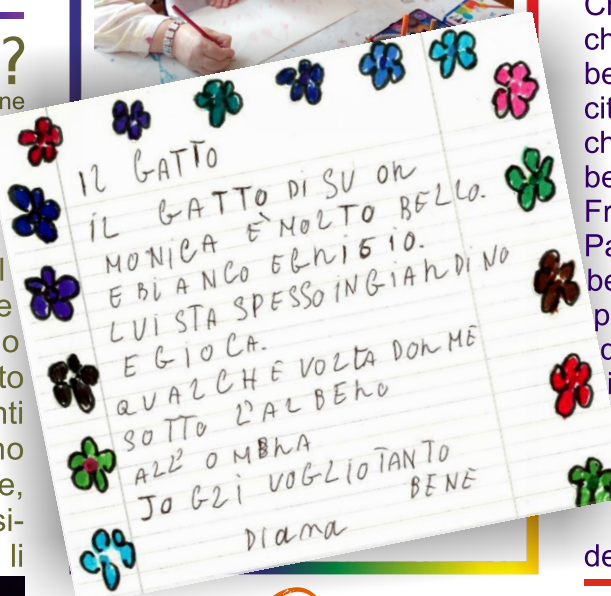 ?
ne
l
e
o
to
nti
no
e,
si-
li
IL GATTO
IL GATTO DI SUOR
MONICA È MOLTO BELLO.
E BIANCO E GRIGIO.
LUI STA SPESSO IN GIARDINO
E GIOCA.
QUALCHE VOLTA DORME
SOTTO L'ALBERO
ALL'OMBRA
IO GLI VOGLIO TANTO
BENE
Diana
ch
be
cit
ch
be
Fr
Pa
be
de